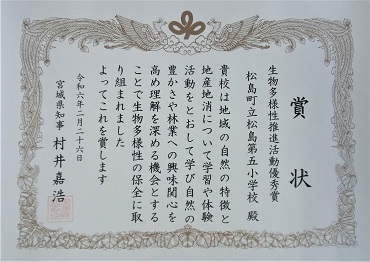 賞状
生物多様性推進活動優秀賞
松島町立松島第五小学校 殿
貴校は地域の自然の特徴と
地産地消について学習や体験
活動をとおして学び自然の
豊かさや林業への興味関心を
高め理解を深める機会とする
ことで生物多様性の保全に取
り組まれました
よってこれを賞します
令和六年二月二十六日
宮城県知事 村井嘉浩